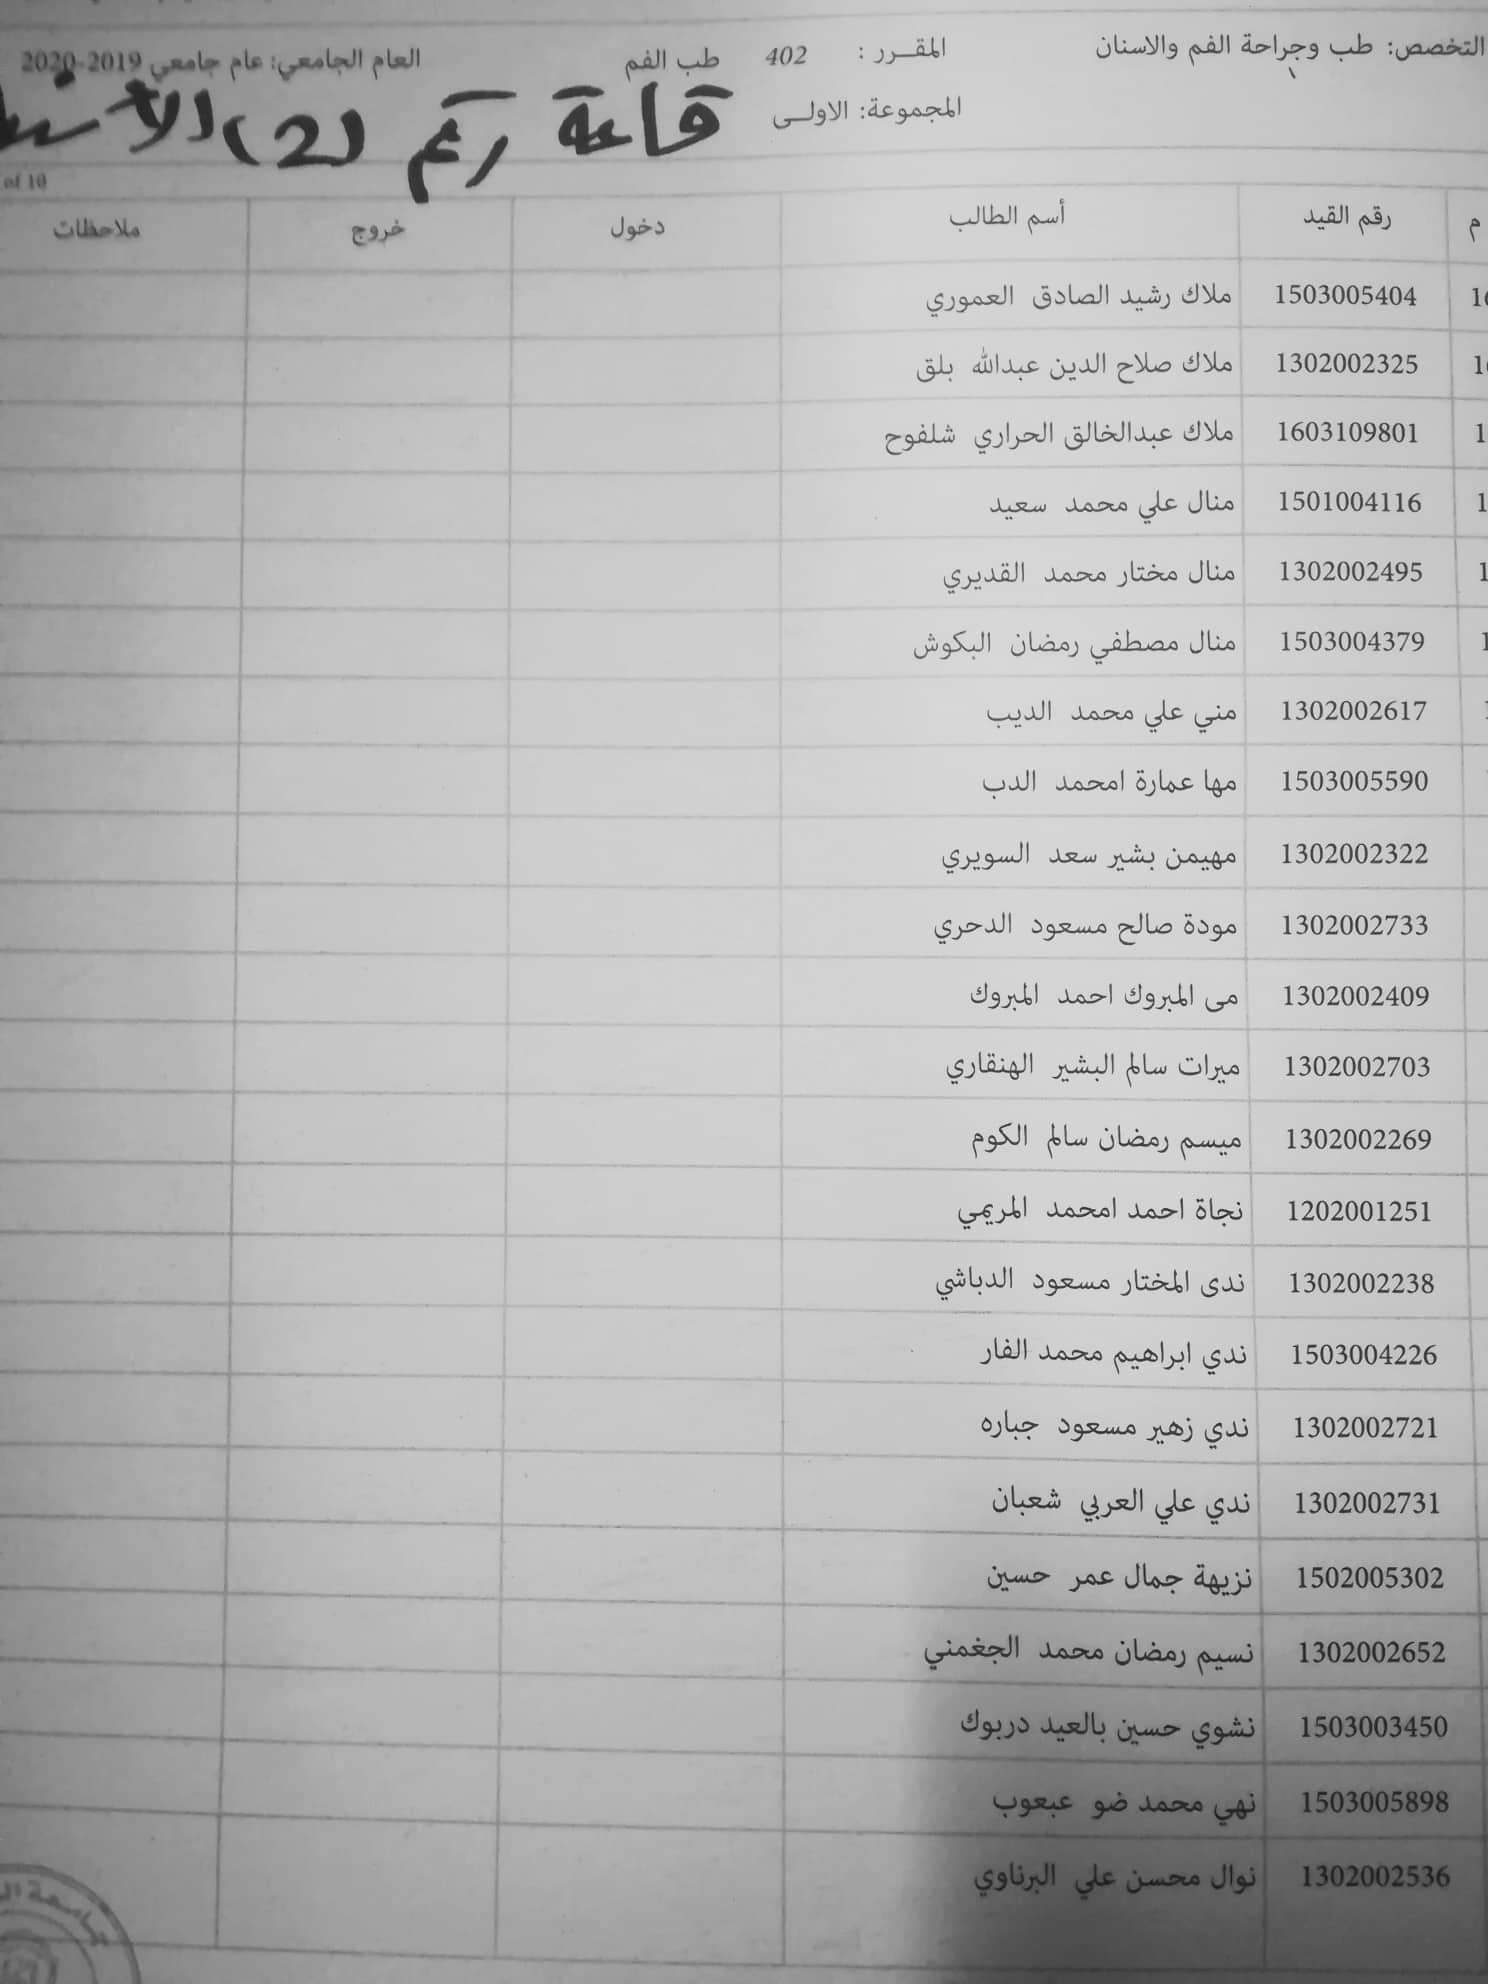 التخصص: طب وجراحة الفم والاسنان المقـــرر : 402 طب الفم العام الجامعي: عام جامعي 2019-2020
المجموعة: الاولــى
قاعة رقم (2)
of 10
م رقم القيد أسم الطالب دخول خروج ملاحظات
1503005404 ملاك رشيد الصادق العموري
1302002325 ملاك صلاح الدين عبدالله بلق
1603109801 ملاك عبدالخالق الحراري شلفوح
1501004116 منال علي محمد سعيد
1302002495 منال مختار محمد القديري
1503004379 منال مصطفي رمضان البكوش
1302002617 مني علي محمد الديب
1503005590 مها عمارة امحمد الدب
1302002322 مهيمن بشير سعد السويري
1302002733 مودة صالح مسعود الدحري
1302002409 مى المبروك احمد المبروك
1302002703 ميرات سالم البشير الهنقاري
1302002269 ميسم رمضان سالم الكوم
1202001251 نجاة احمد امحمد المريمي
1302002238 ندى المختار مسعود الدباشي
1503004226 ندي ابراهيم محمد الفار
1302002721 ندي زهير مسعود جباره
1302002731 ندي علي العربي شعبان
1502005302 نزيهة جمال عمر حسين
1302002652 نسيم رمضان محمد الجغمني
1503003450 نشوي حسين بالعيد دربوك
1503005898 نهي محمد ضو عبعوب
1302002536 نوال محسن علي البرناوي